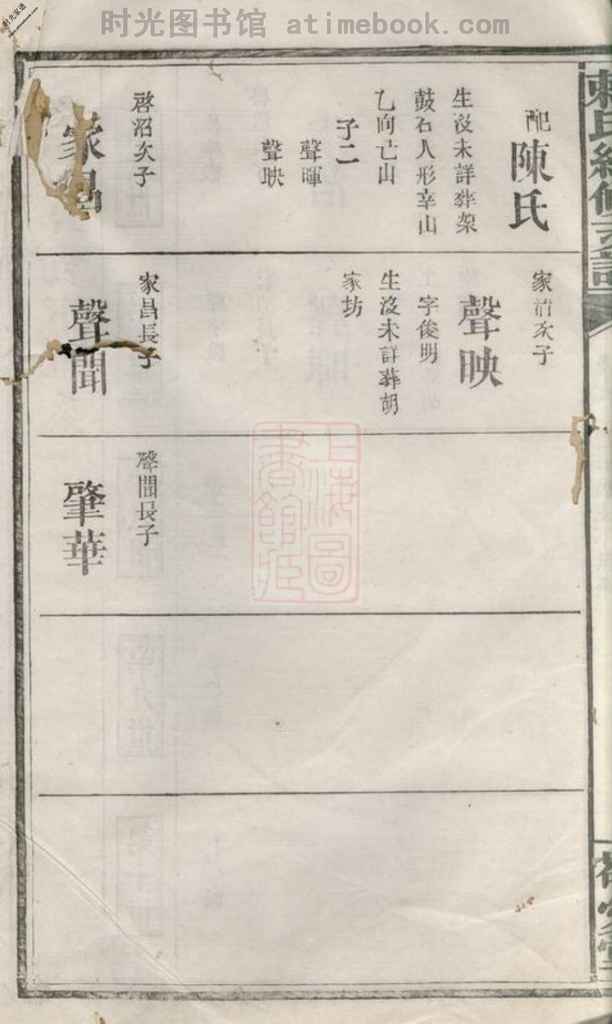 时光图书馆 atimebook.com
配陳氏
生沒未詳葬架
鼓石人形辛山
乙向亡山
子二
聲暉
聲映
啓沼次子
家昌
家沼次子
聲映
字俊明
生沒未詳葬胡
家坊
家昌長子
聲聞
聲聞長子
肇華
上海圖
書館藏